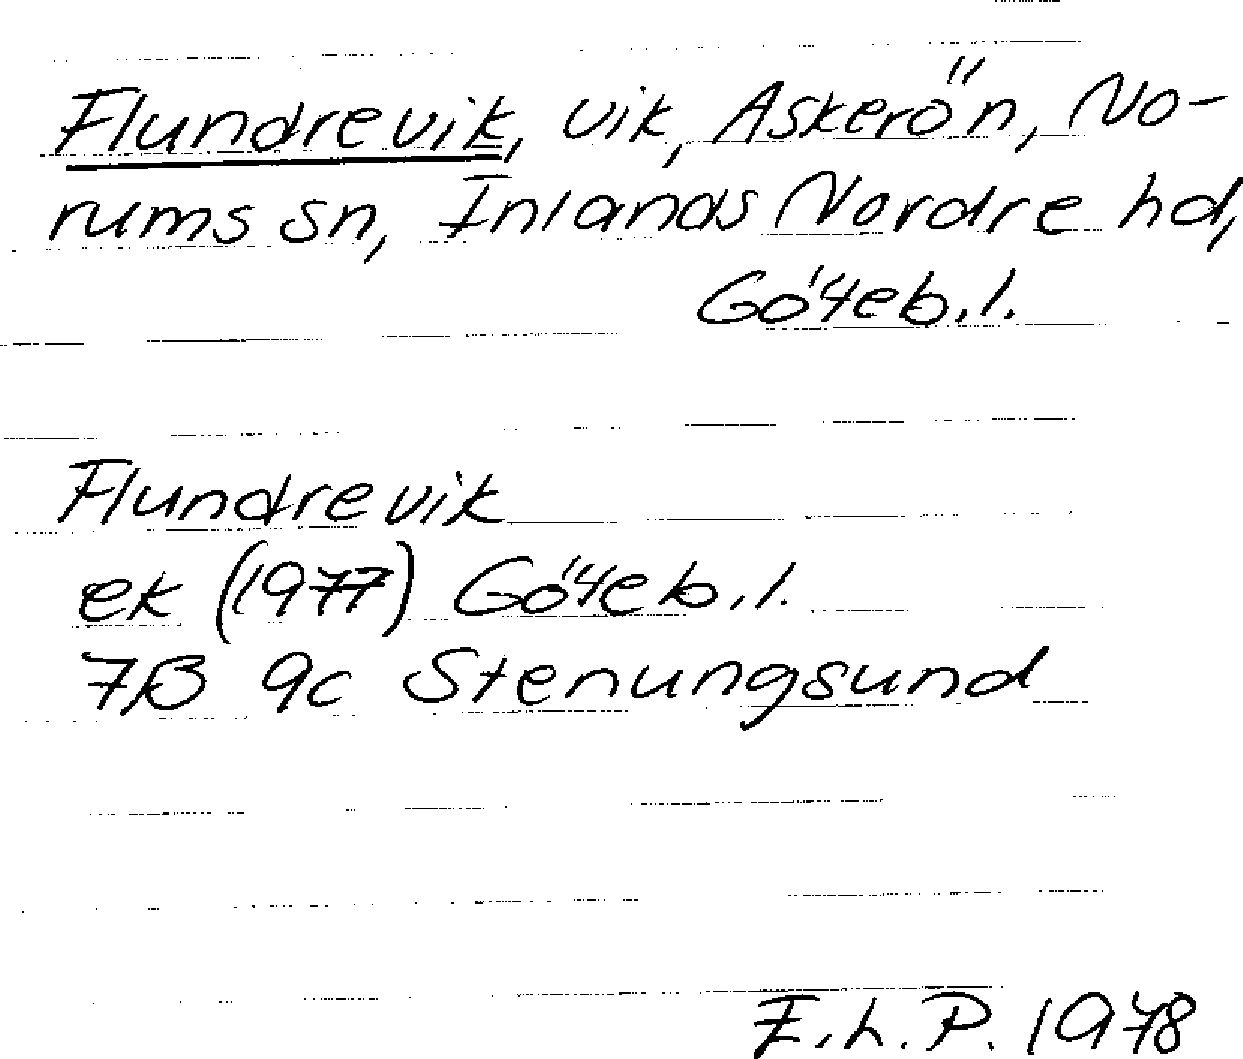 Flundrevik, vik, Askerön, No-
rums sn, Inlands Nordre hd,
Göteb.l.
Flundrevik
ek (1977) Göteb.l.
7B 9c Stenungsund
E.L.P. 1978